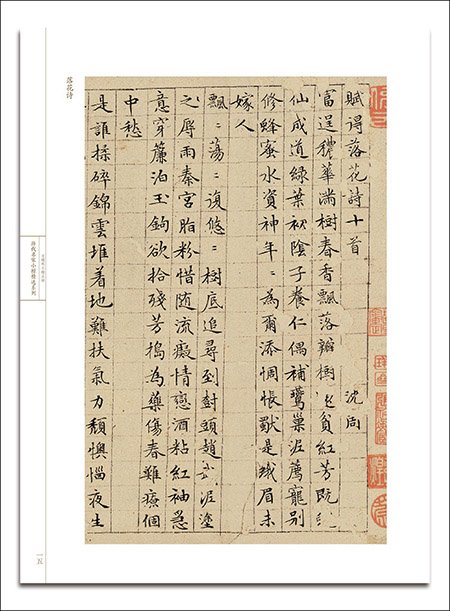 賦得落花詩十首 沈周
富逞穠華滿樹春香飄落瓣樹還貧紅芳既
仙成道綠葉初陰子養仁偶補鶯巢泥薦寵別
修蜂蜜水資神年〻為爾添惆悵獸是蛾眉未
嫁人
飄〻蕩〻復悠〻樹底追尋到樹頭趙武泥塗
之辱雨秦宮脂粉惜隨流癡情戀酒粘紅袖急
意穿簾泊玉鉤欲拾殘芳搗為藥傷春難療個
中愁
是誰揉碎錦雲堆着地難扶氣力頹懊惱夜生
落花诗
历代名家小楷精选系列
一五